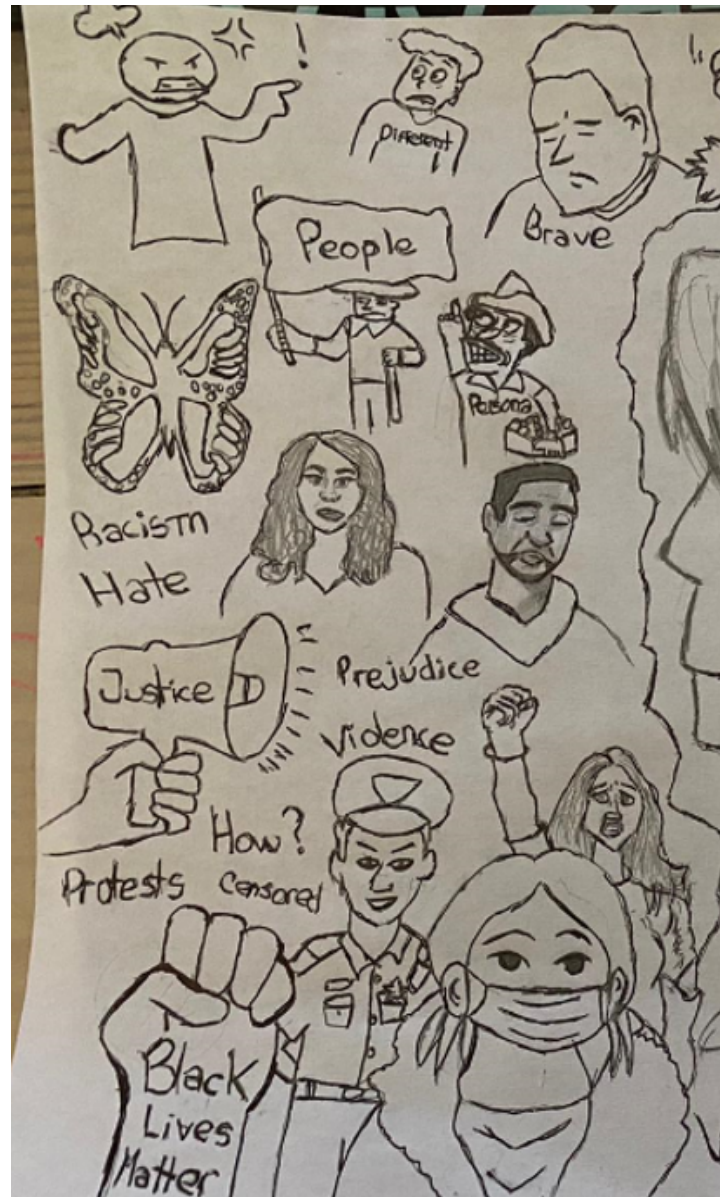 !
Different
Brave
People
Persona
Racism
Hate
Justice
Prejudice
Violence
How?
Protests
Censored
Black
Lives
Matter